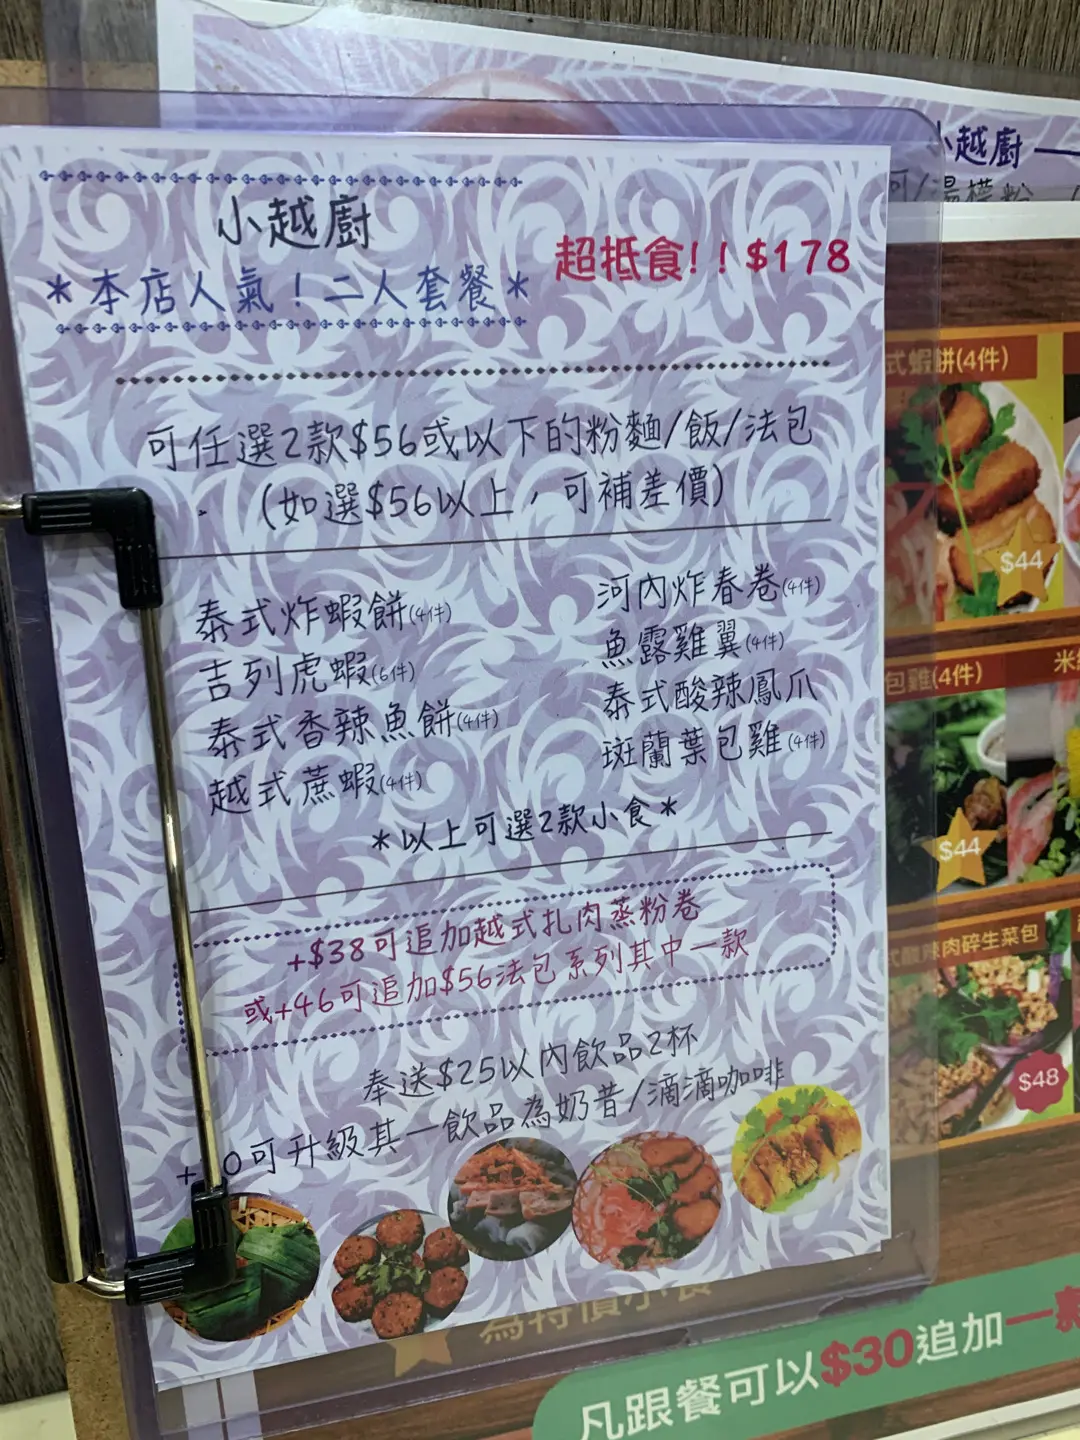 小越廚
*本店人氣！二人套餐*
超抵食!!$178
可任選2款$56或以下的粉麵/飯/法包
(如選$56以上，可補差價)
泰式炸蝦餅(4件)
吉列虎蝦(6件)
泰式香辣魚餅(4件)
越式蔗蝦(4件)
河內炸春卷(4件)
魚露雞翼(4件)
泰式酸辣鳳爪
斑蘭葉包雞(4件)
*以上可選2款小食*
+$38可追加越式扎肉蒸粉卷
或+46可追加$56法包系列其中一款
奉送$25以內飲品2杯
+ 0可升級其一飲品為奶昔/滴滴咖啡
小越廚
湯檬粉
式蝦餅(4件)
$44
包雞(4件)
米
$44
肉碎生菜包
$48
為特價小食
凡跟餐可以$30追加一